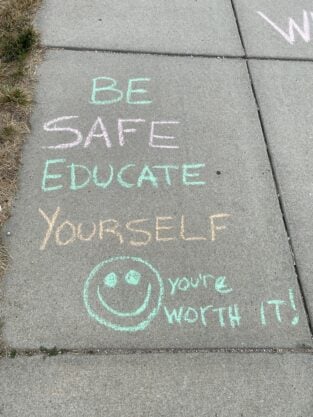 BE
SAFE
EDUCATE
YOURSELF
YOU'RE
WORTH IT!